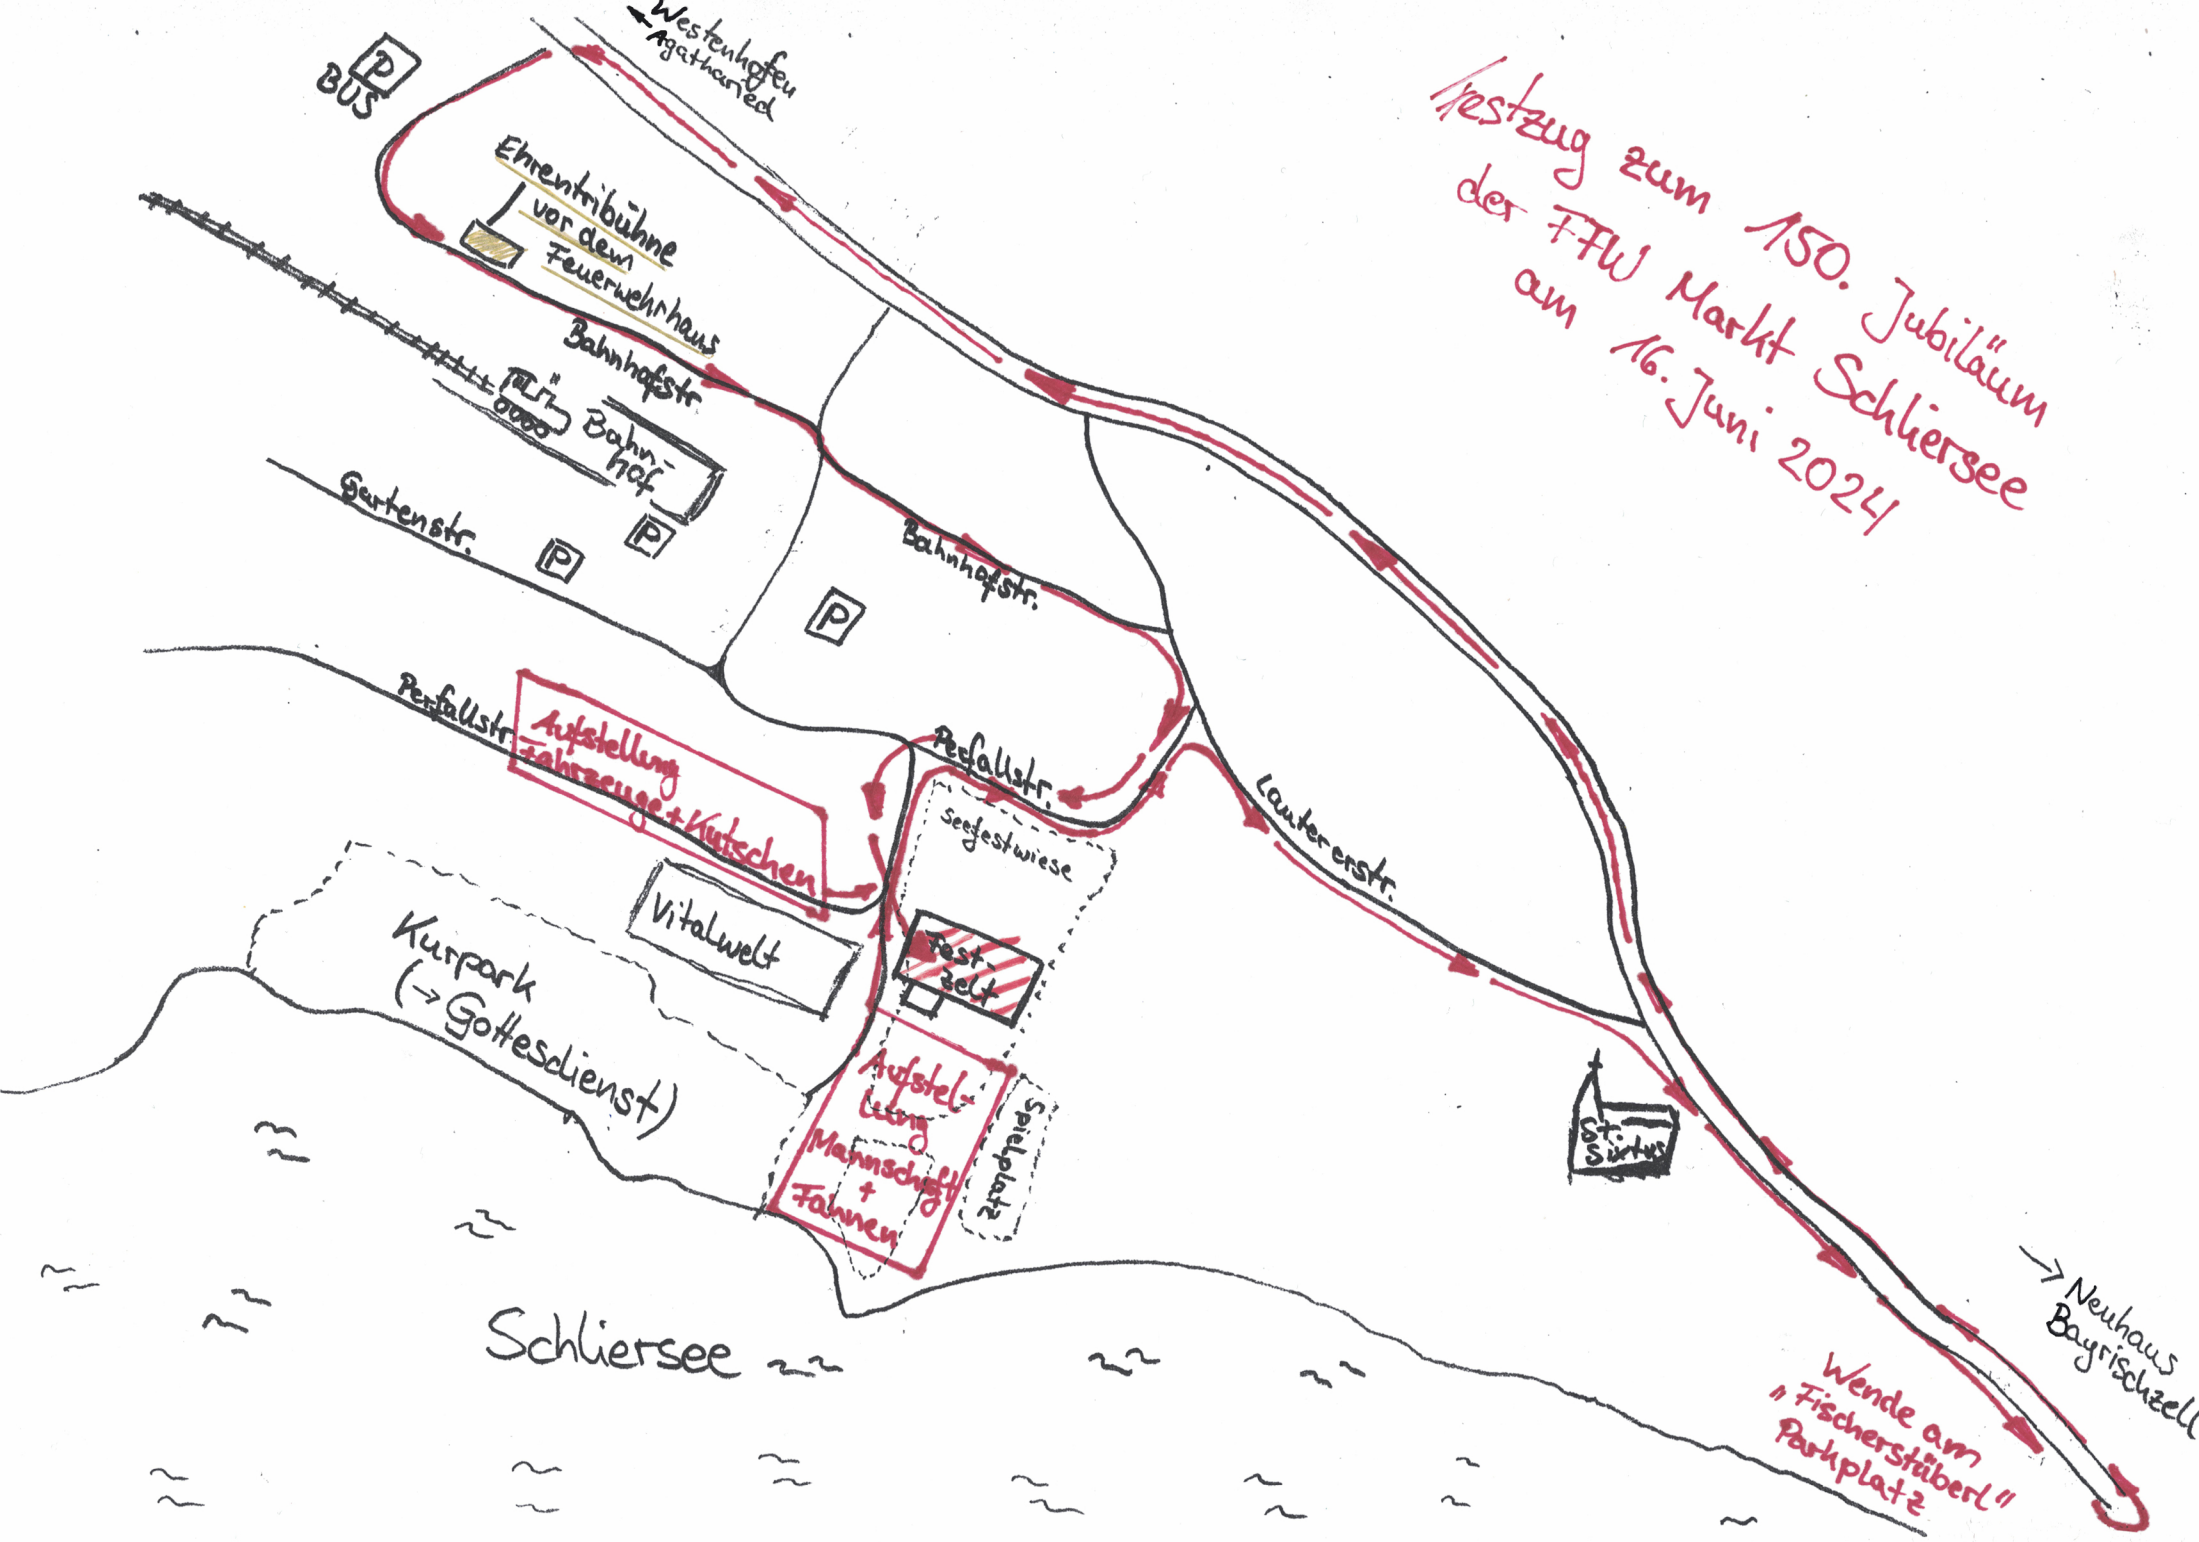 Westenhofen
Agatharied
P
BUS
Festzug zum 150. Jubiläum
der FFW Markt Schliersee
am 16. Juni 2024
Ehrentribühne
vor dem
Feuerwehrhaus
Bahnhofstr.
Bahn-
hof
Gartenstr.
P
P
Bahnhofstr.
P
Perfallstr.
Aufstellung
Fahrzeuge + Kutschen
Perfallstr.
Seefestwiese
Lautererstr.
Vitalwelt
Fest-
zelt
Kurpark
(→ Gottesdienst)
Aufstel-
lung
Mannschaft
+
Fahnen
Spielplatz
St.
Sixtus
Schliersee
→ Neuhaus
Bayrischzell
Wende am
"Fischerstüberl"
Parkplatz